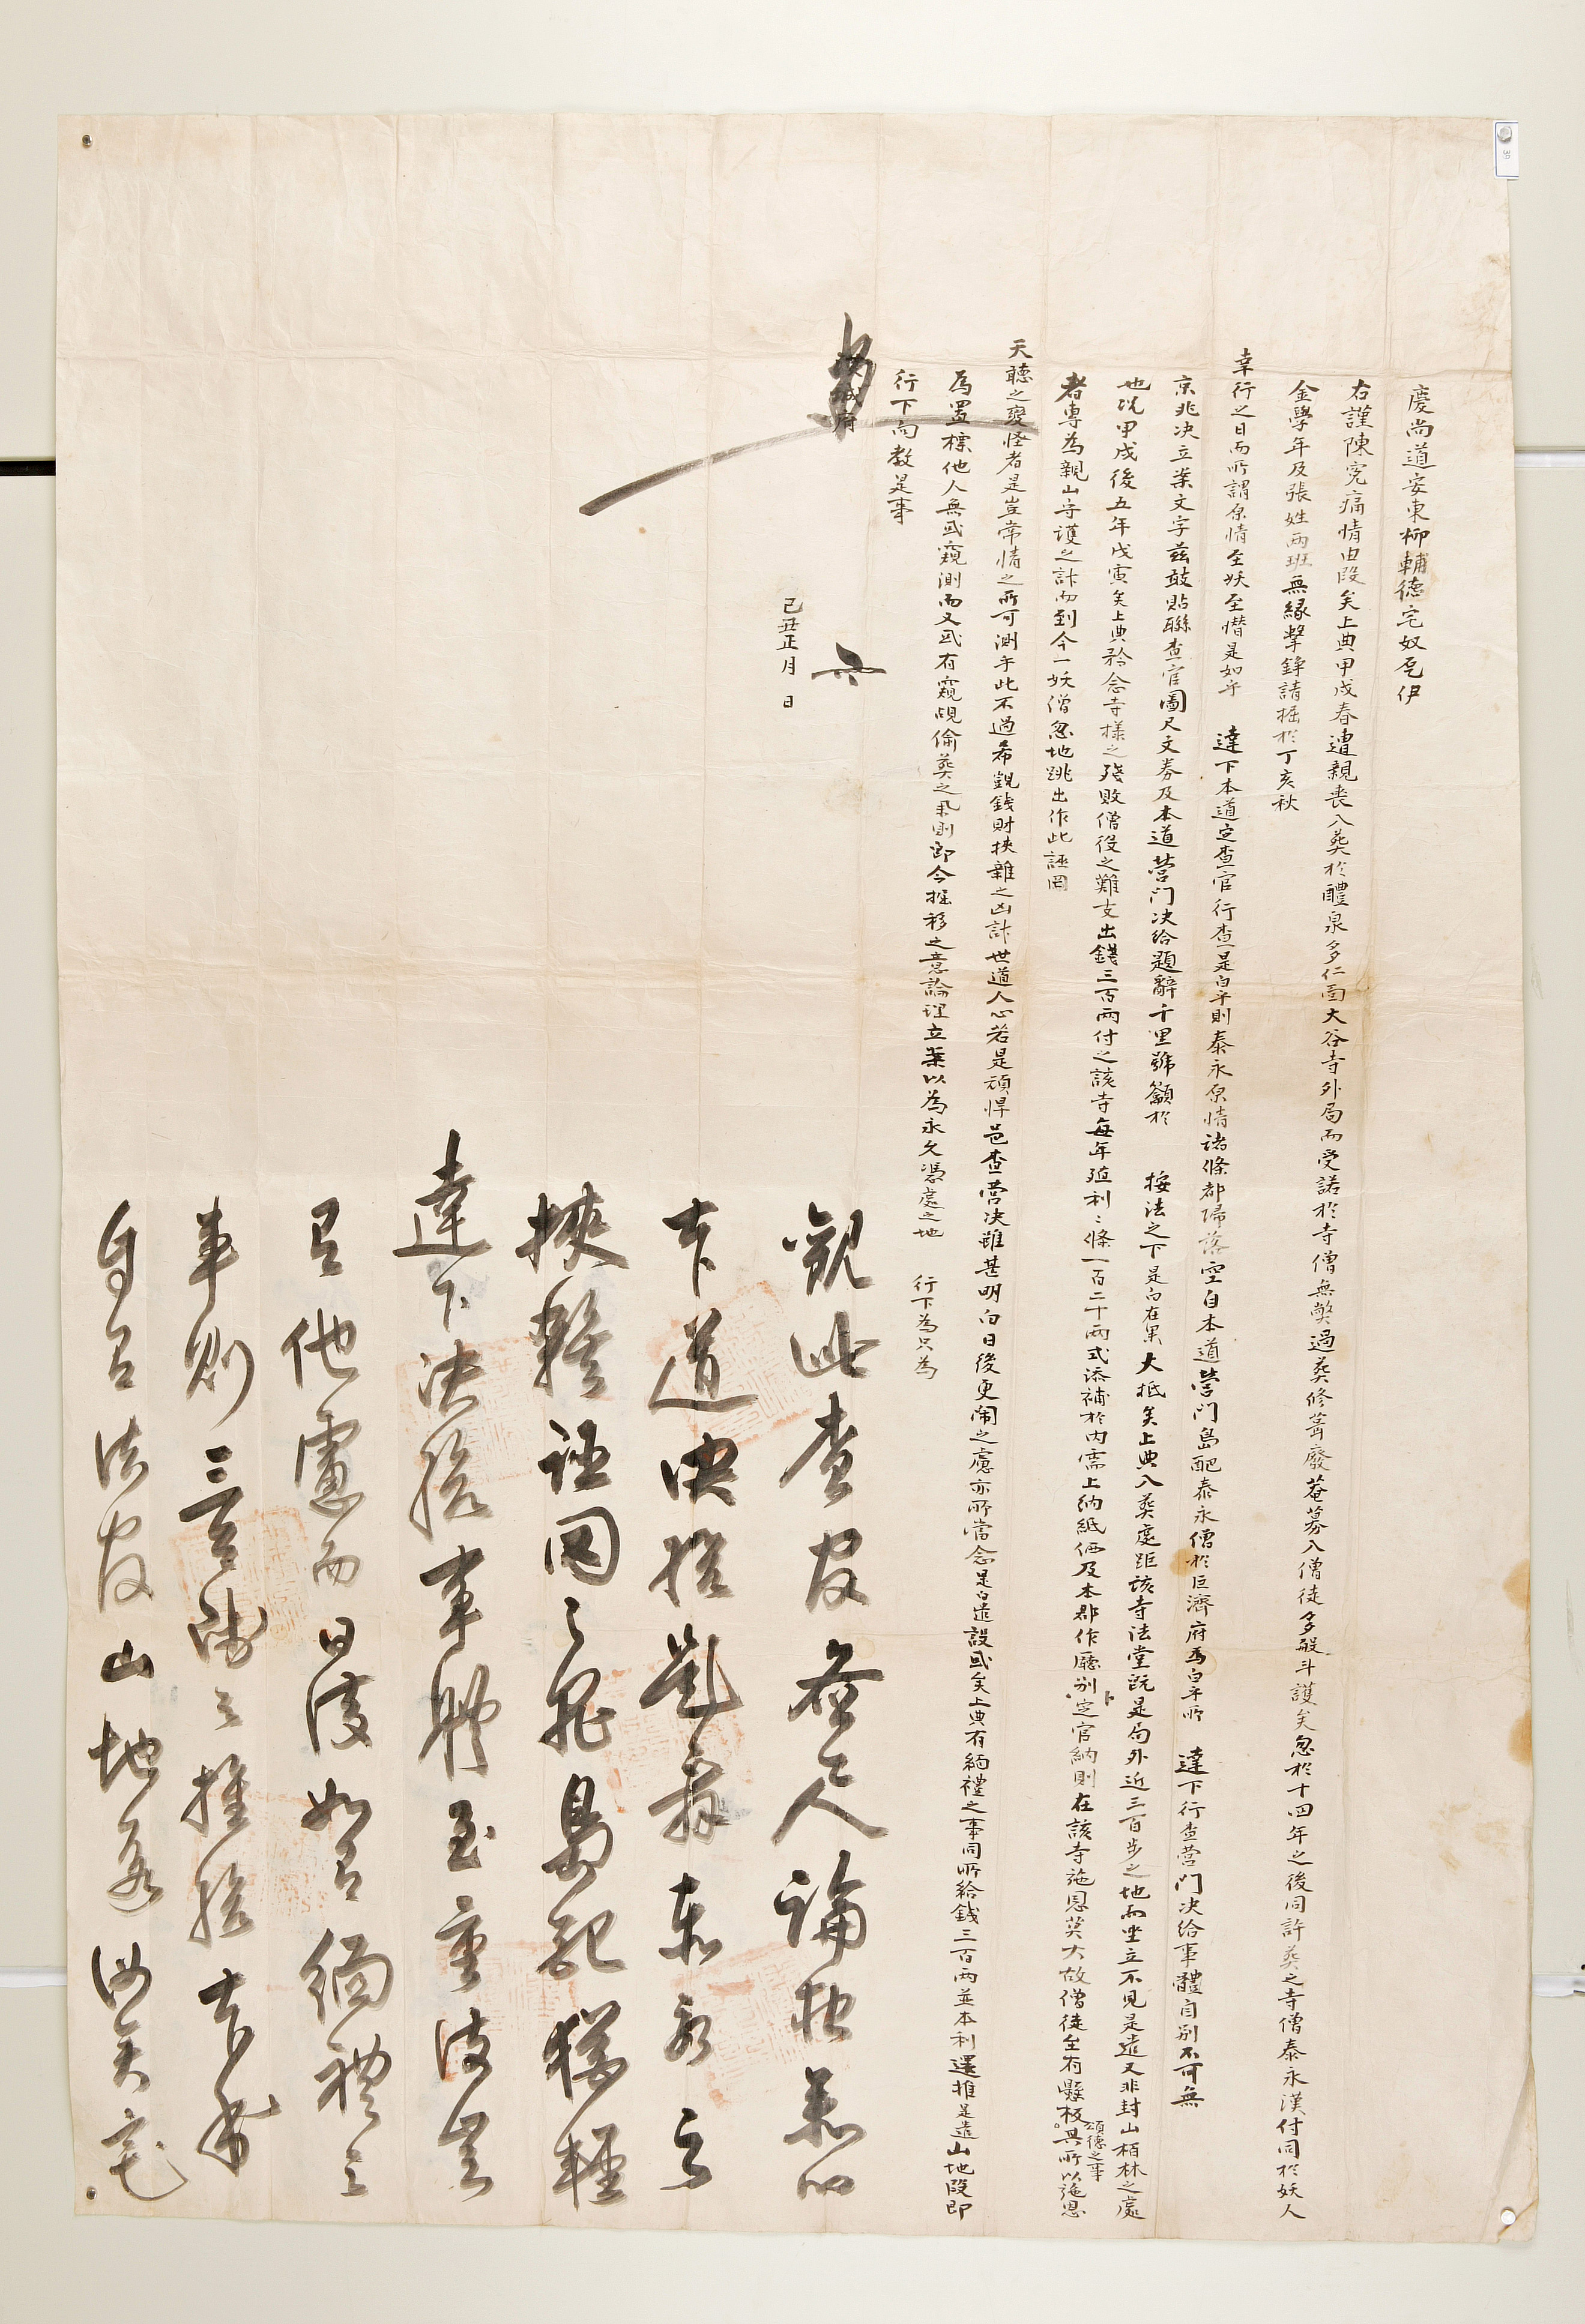 慶尚道安東柳輔德宅奴乭伊
右謹陳寃痛情由段矣上典甲戌春遭親喪入葬於醴泉多仁面大谷寺外局而受諾於寺僧無弊過葬修葺廢菴募入僧徒多般斗護矣忽於十四年之後同許葬之寺僧泰永漢付同於妖人
金學年及張姓兩班無緣擊錚請掘於丁亥秋
幸行之日而所謂原情至妖至憯是如乎 達下本道定查官行查是白乎則泰永原情諸條都歸落空自本道營門島配泰永僧於巨濟府爲白乎所 達下行查營門决給事體自別不可無
京兆决立案文字茲敢貼聯查官圖尺文券及本道營门决給題辭千里號籲於 按法之下是白在果大抵矣上典入葬處距該寺法堂旣是局外近三百步之地而坐立不見是遣又非封山栢林之處
也況甲戌後五年戊寅矣上典矜念寺樣之殘敗僧役之難支出錢三百兩付之該寺每年殖利〻條一百二十兩式添補於內需上納紙価及本郡作廳別定官納則在該寺施恩莫大故僧徒至有懸板頌德之事其所以施恩
者專為親山守護之計而到今一妖僧忽地跳出作此誣罔
天聽之變怪者是豈常情之所可測乎此不過希覬錢財挾雜之凶計世道人心若是頑悍邑查營决雖甚明白日後更鬧之慮亦所當念是白遣設或矣上典有緬禮之事同所給錢三百兩並本利還推是遣山地段即
為置標他人無或窺測而又或有窺覘偷葬之弊則即令掘移之意論理立案以為永久憑處之地 行下為只為
行下向教是事
漢城府
己丑正月 日
觀此查官 人論報
本道决給題辭泰永之
挾雜誣罔之罪島配猶輕
達下决給事體至重彼豈
有他慮而日後如有緬禮之
事則三百兩之推給
自有法官山地